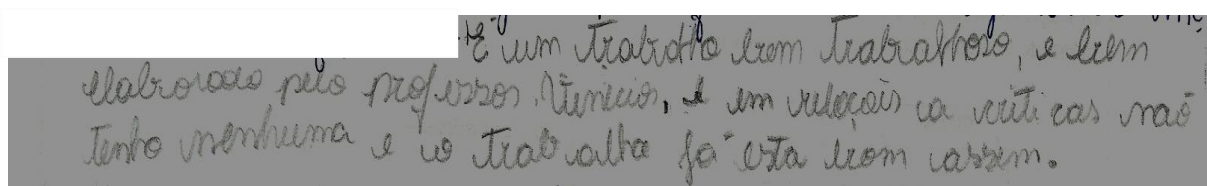 É um trabalho bem trabalhoso, e bem
elaborado pelo professor Vinicius, e em relaçais a criticas não
tenho nenhuma e o trabalha já esta bom assim.